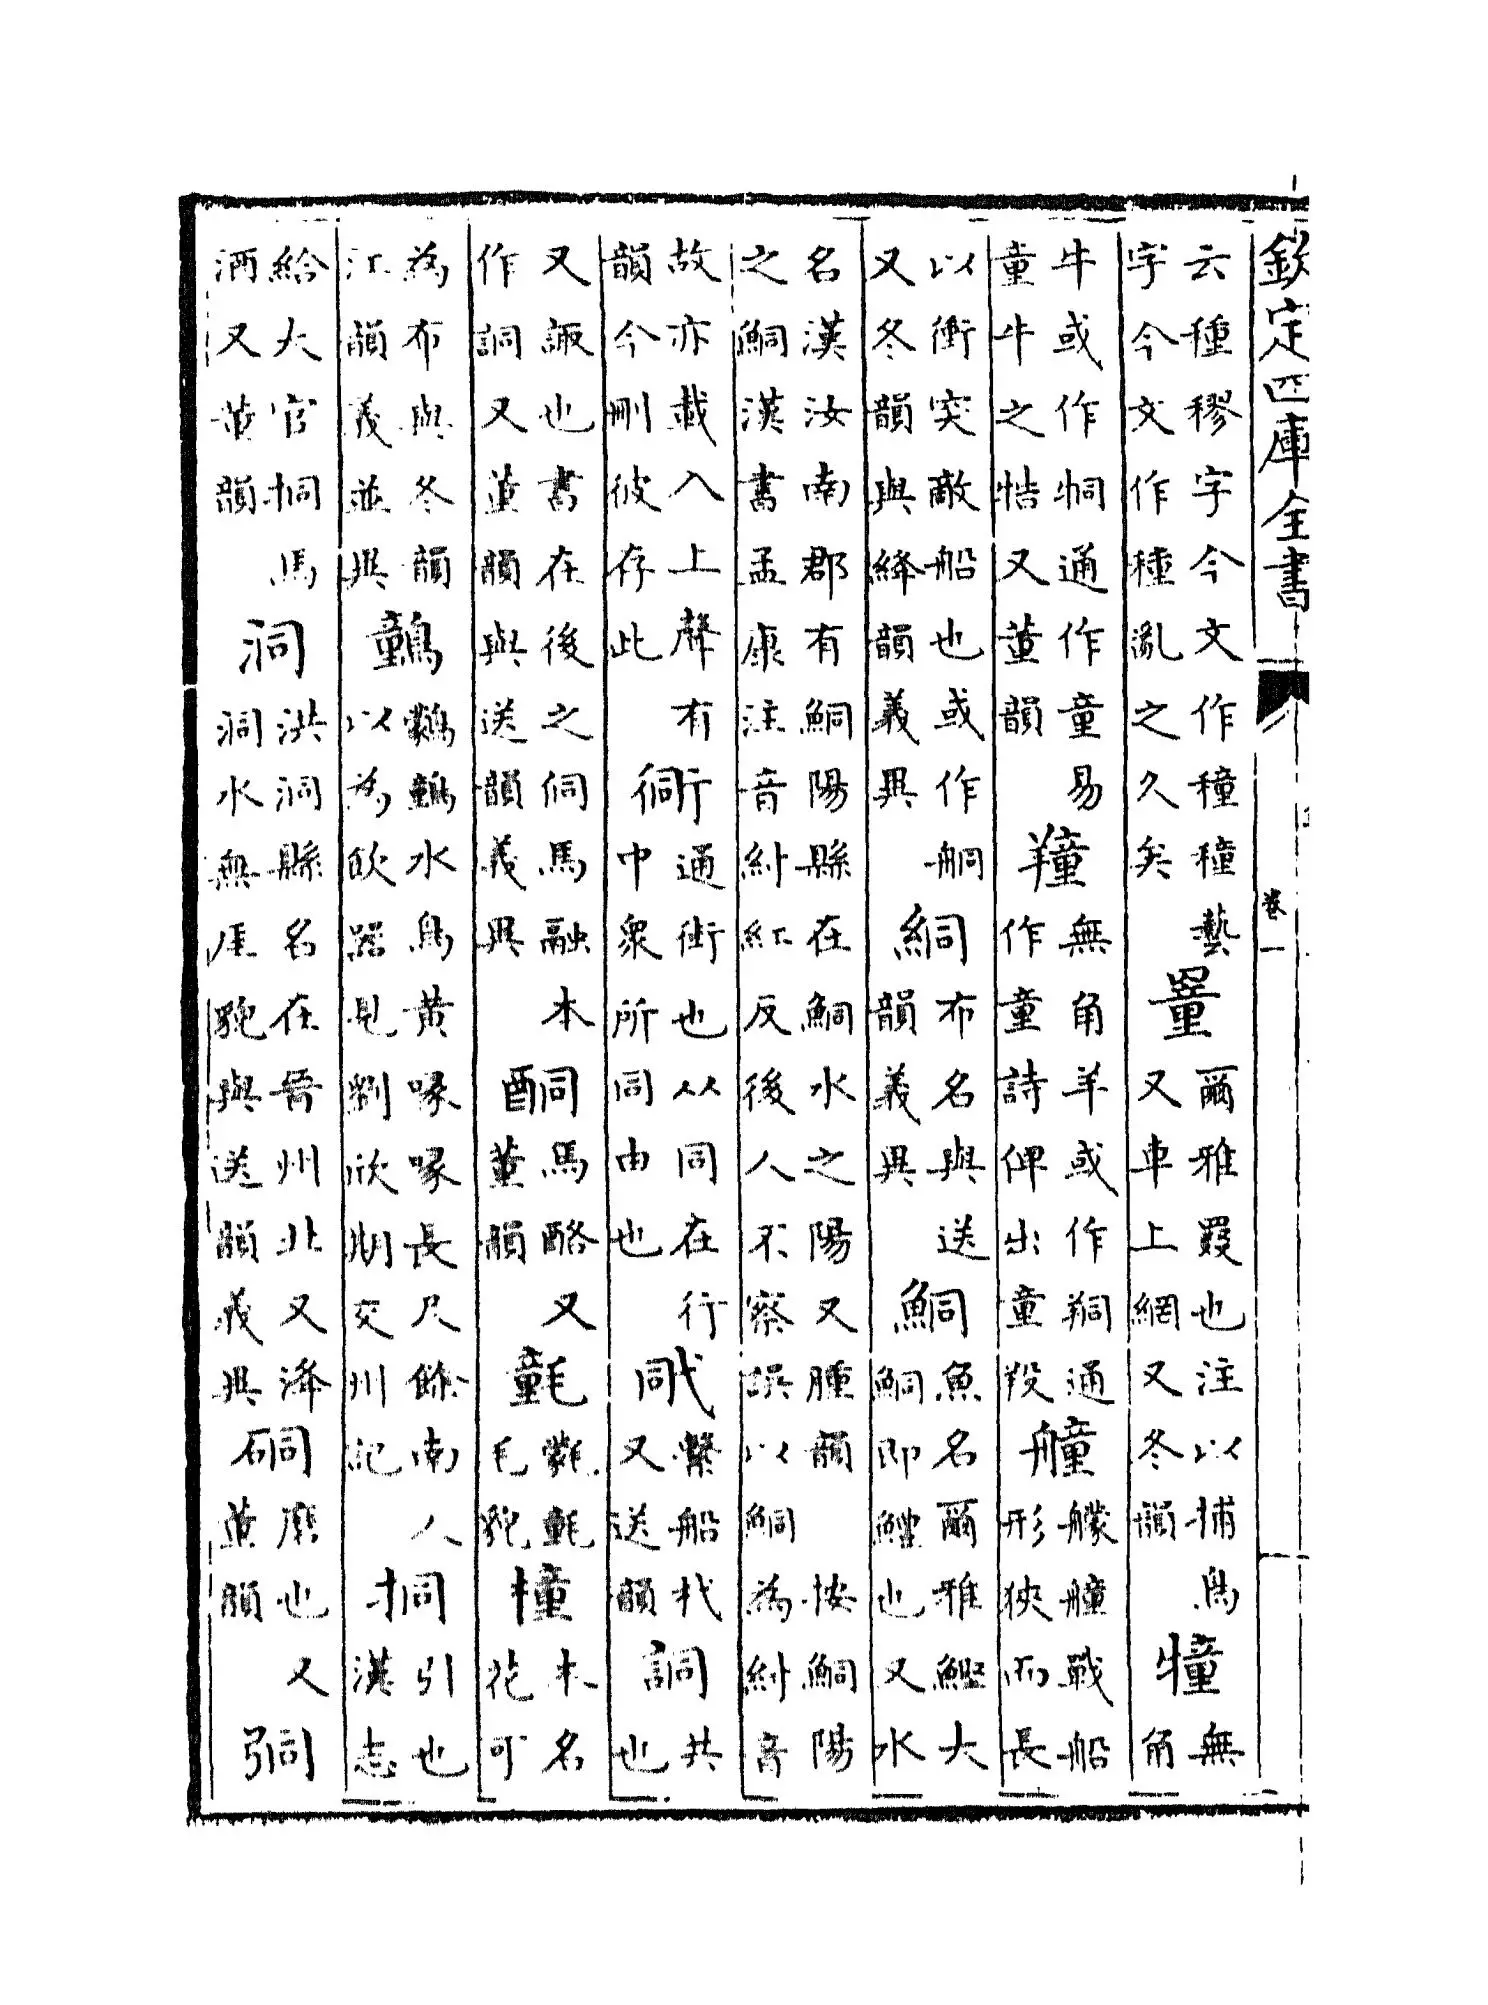 欽定四庫全書 卷一
云種穋字今文作穜穜藝
字今文作種亂之久矣
罿
爾雅罬也注以捕鳥
又車上網又冬韻
犝
無
角
牛或作㸗通作童易
童牛之牿又董韻
無角羊或作通
作童詩俾出童羖
艟
艨艟戰船
形狹而長
以衝突敵船也或作
又冬韻與絳韻義異
絧
布名與送
韻義異
鮦
魚名爾雅鰹大
鮦即鱧也又水
名漢汝南郡有鮦陽縣在鮦水之陽又腫韻 按鮦陽
之鮦漢書孟康注音紂紅反後人不察誤以鮦為紂音
故亦載入上聲有
韻今刪彼存此
衕
通街也从同在行
中衆所同由也
戙
繫船杙
又送韻
詷
共
也
又諏也書在後之侗馬融本
作詷又董韻與送韻義異
酮
馬酪又
董韻
氃
氋氃
毛貌
橦
木名
花可
為布與冬韻
江韻義並異
鸏水鳥黃喙喙長尺餘南人
以為飲器見劉欣期交州記
挏
引也
漢志
給大官挏馬
酒又董韻
洞
洪洞縣名在晉州北又洚
洞水無厓貌與送韻義異
硐
磨也又
董韻